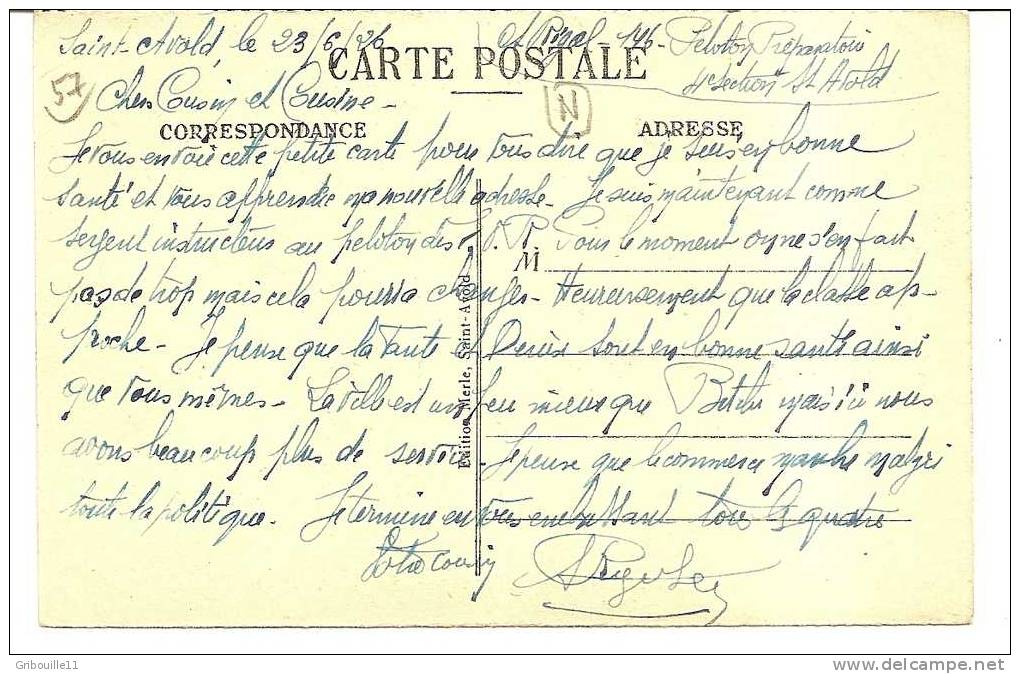 Saint-Avold, le 23/6/26
146 - Peloton Préparatoire
4e Section St Avold
57
CARTE POSTALE
Chers Cousin et Cousine -
N
CORRESPONDANCE
ADRESSE
Je vous envoie cette petite carte pour vous dire que je suis en bonne
santé et vous apprendre ma nouvelle adresse - Je suis maintenant comme
sergent instructeur au peloton des E.O.R. Pour le moment on ne s'en fait
M
pas de trop mais cela pourra changer - Heureusement que la classe ap-
proche - Je pense que la Tante et Denise sont en bonne santé ainsi
que vous mêmes - La ville est un peu mieux que Bitche mais ici nous
avons beaucoup plus de service - Je pense que le commerce marche malgré
toute la politique - Je termine en vous embrassant tous les quatre
Votre cousin
Edition Merle, Saint-Avold
Gribouille11
http://www.delcampe.net